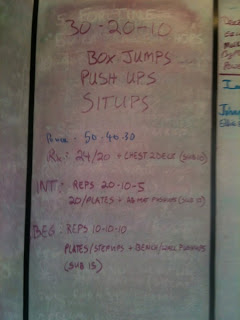 30-20-10
BOX JUMPS
PUSH UPS
SITUPS
50-40-30
Rx: 24/20 + CHEST 2 DECK (SUB 10)
INT: REPS 20-10-5
20/PLATES + PUSHUPS (SUB 12)
BEG: REPS 10-10-10
PLATES/STEPUPS + BENCH/ PUSHUPS
(SUB 15)